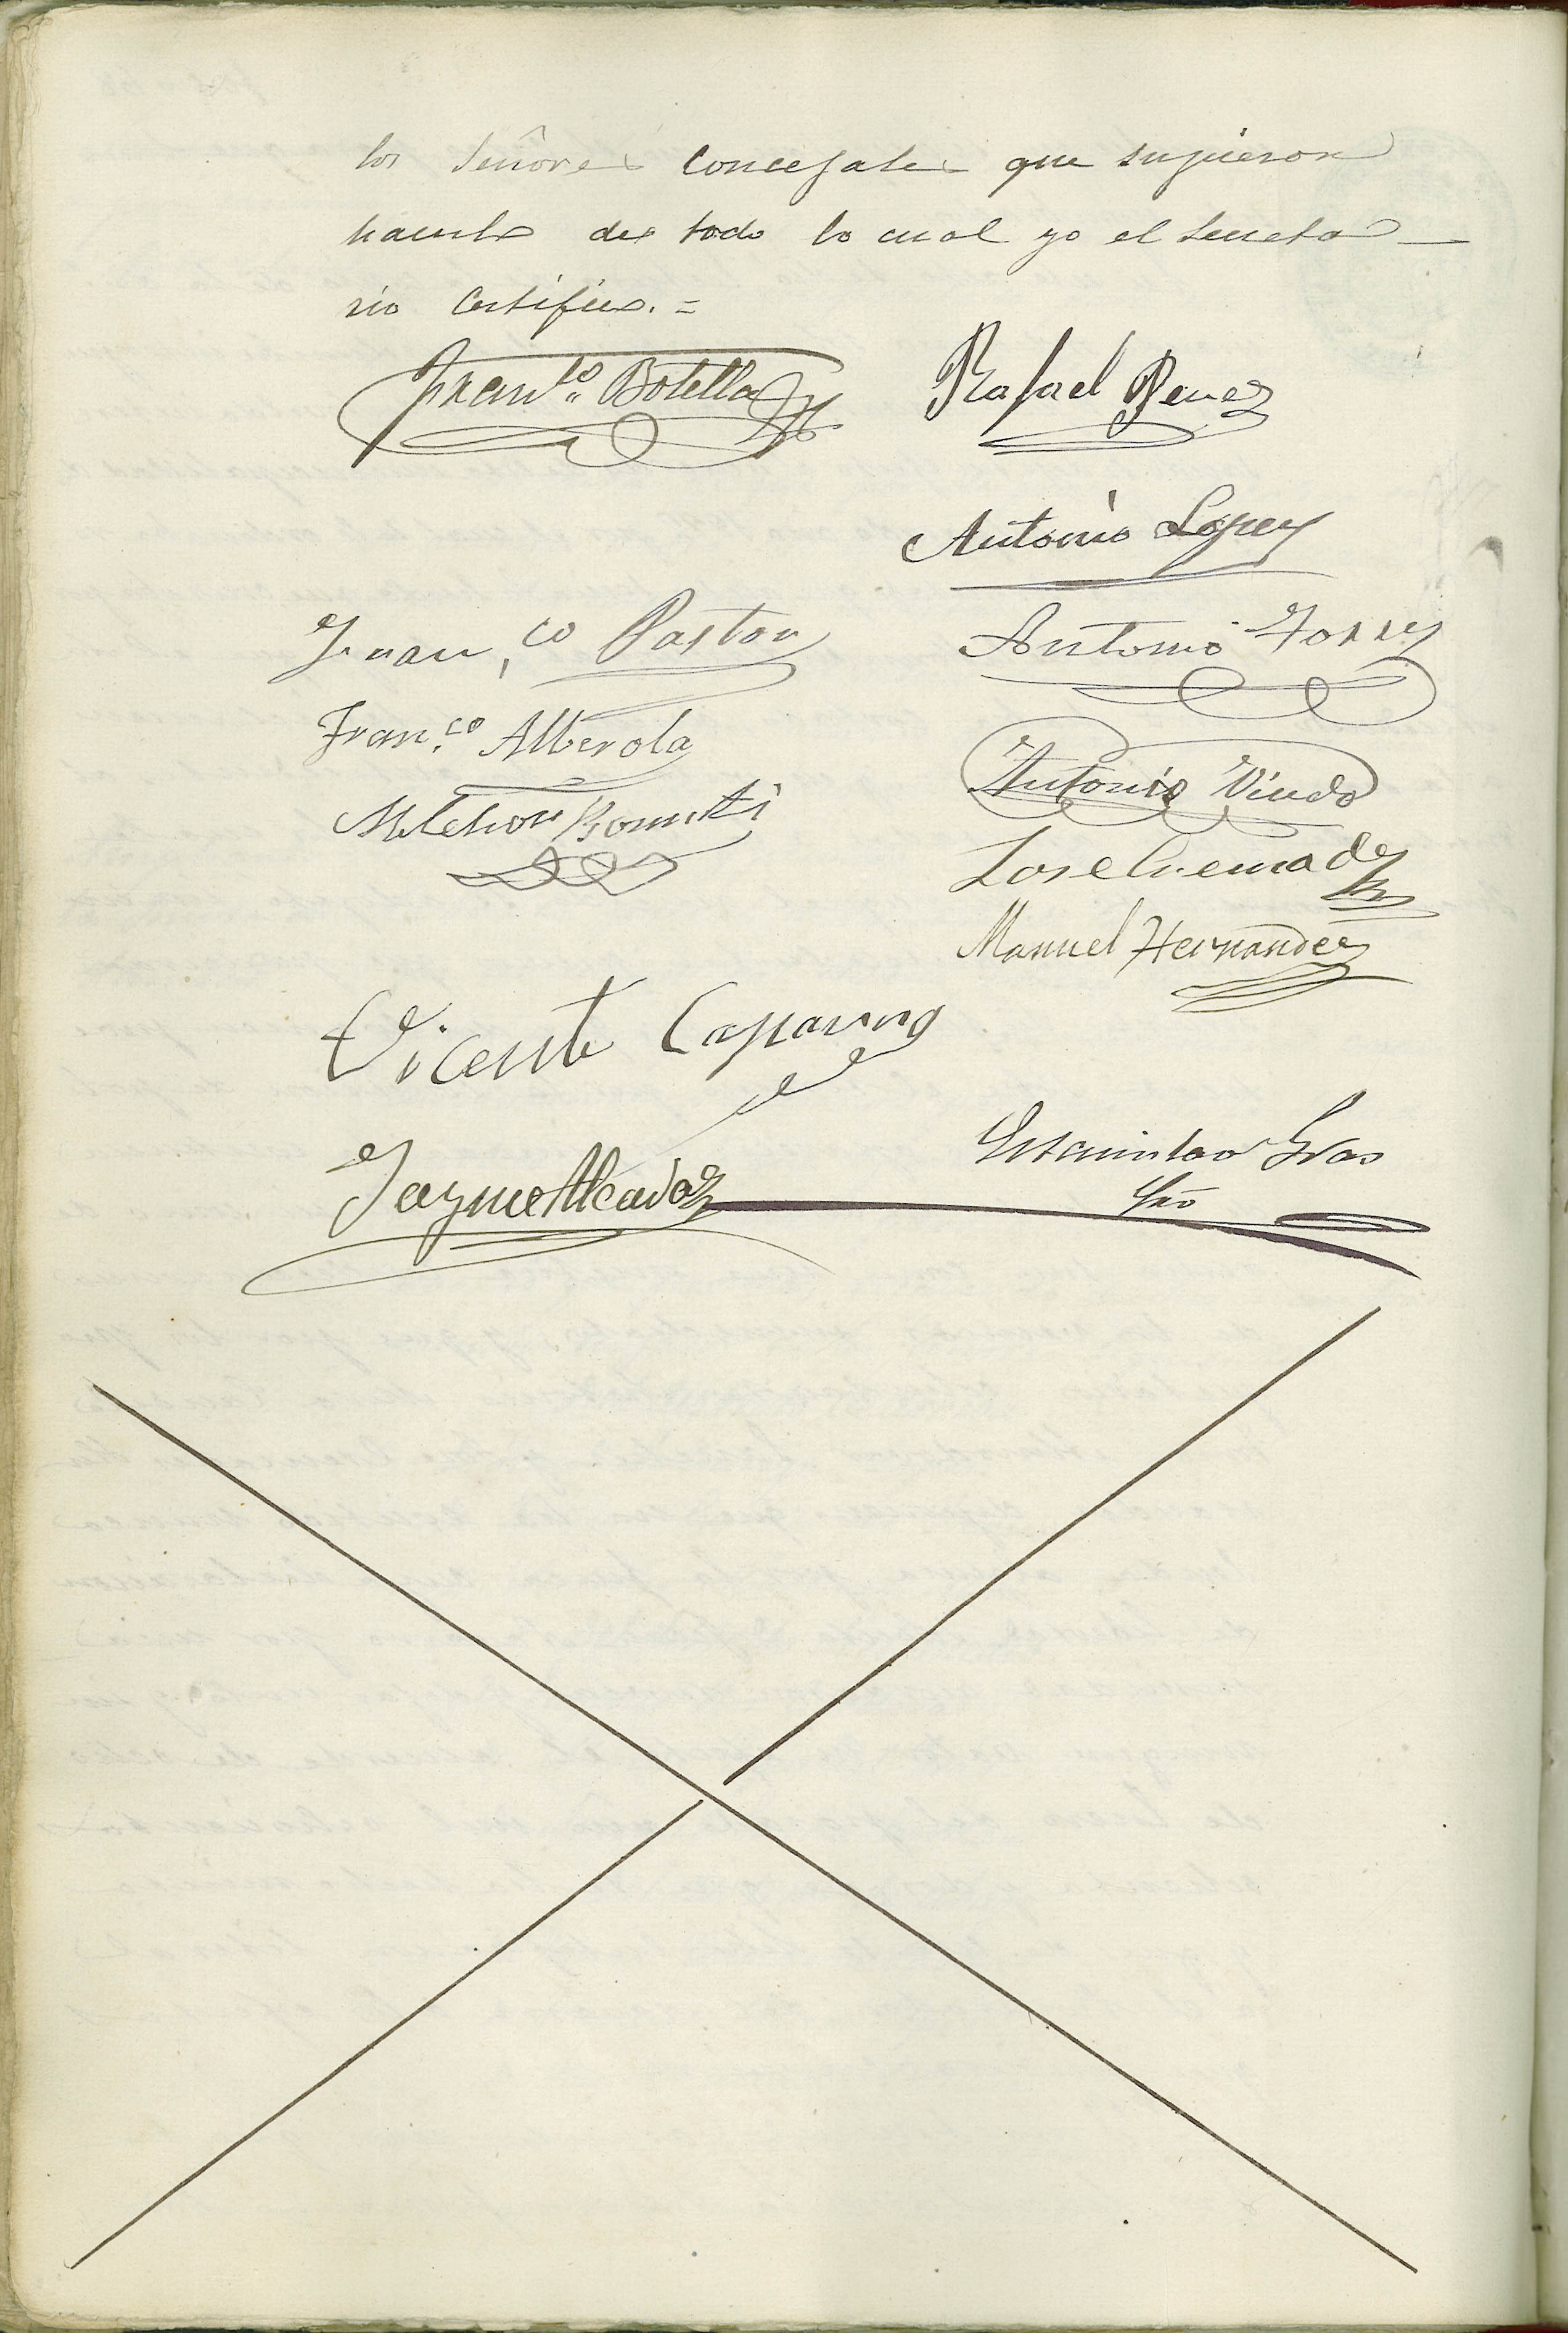 los Señores Concejales que supieron
hacerlo de todo lo cual yo el Secreta-
rio Certifico. =
Fran.co Botella
Rafael Perez
Antonio Lopez
Fran,co Pastor
Antonio Torres
Fran.co Alberola
Antonio Viudo
Melchor
Jose
Manuel Hernandez
Vicente
Jayme Alcaraz
Estanislao Gras
Srio